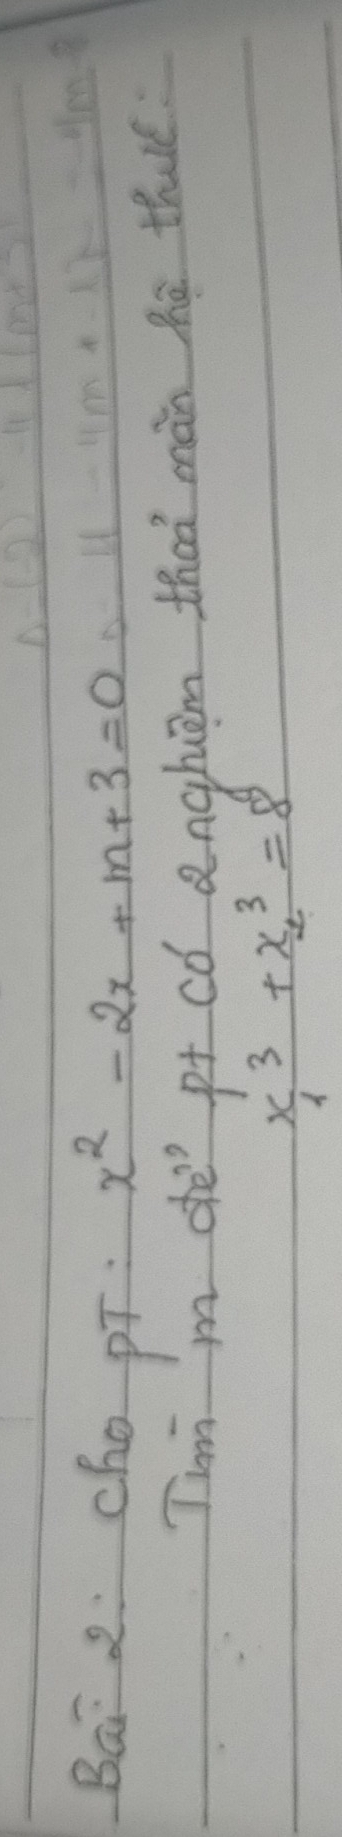 Bài 2: cho pT: x² - 2x + m + 3 = 0
Tìm m để pt có 2 nghiệm thoả mãn hệ thức:
x₁³ + x₂³ = 8